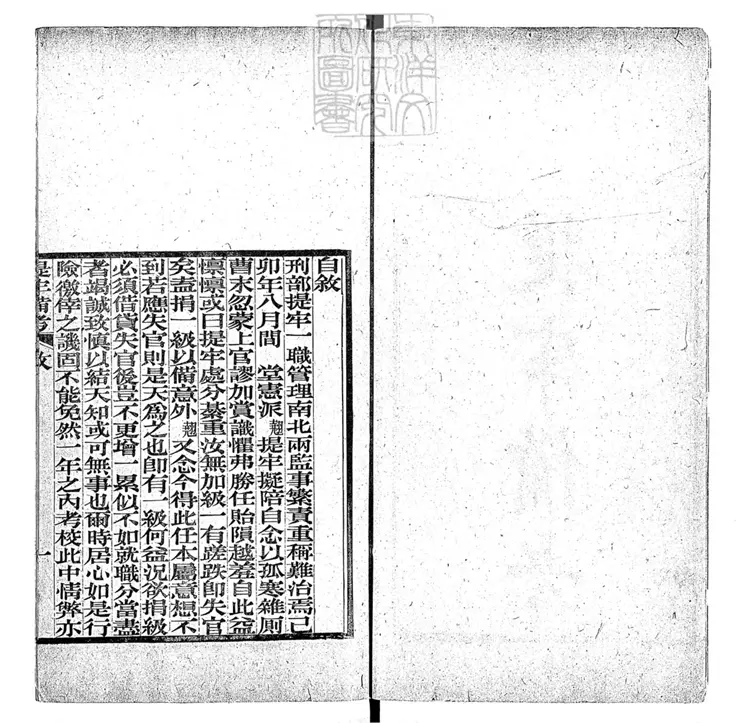 東洋文
化研究
所圖書
自敘
刑部提牢一職管理南北兩監事繁責重稱難治焉己
卯年八月間　堂憲派翹提牢擬陪自念以孤寒雜厠
曹末忽蒙上官謬加賞識懼弗勝任貽隕越羞自此益
懍懍或曰提牢處分綦重汝無加級一有蹉跌卽失官
矣盍捐一級以備意外翹又念今得此任本屬意想不
到若應失官則是天爲之也卽有一級何益況欲捐級
必須借貸失官後豈不更增一累似不如就職分當盡
者竭誠致慎以結天知或可無事也爾時居心如是行
險徼倖之譏固不能免然一年之內考校此中情弊亦
提牢備考　敘　一